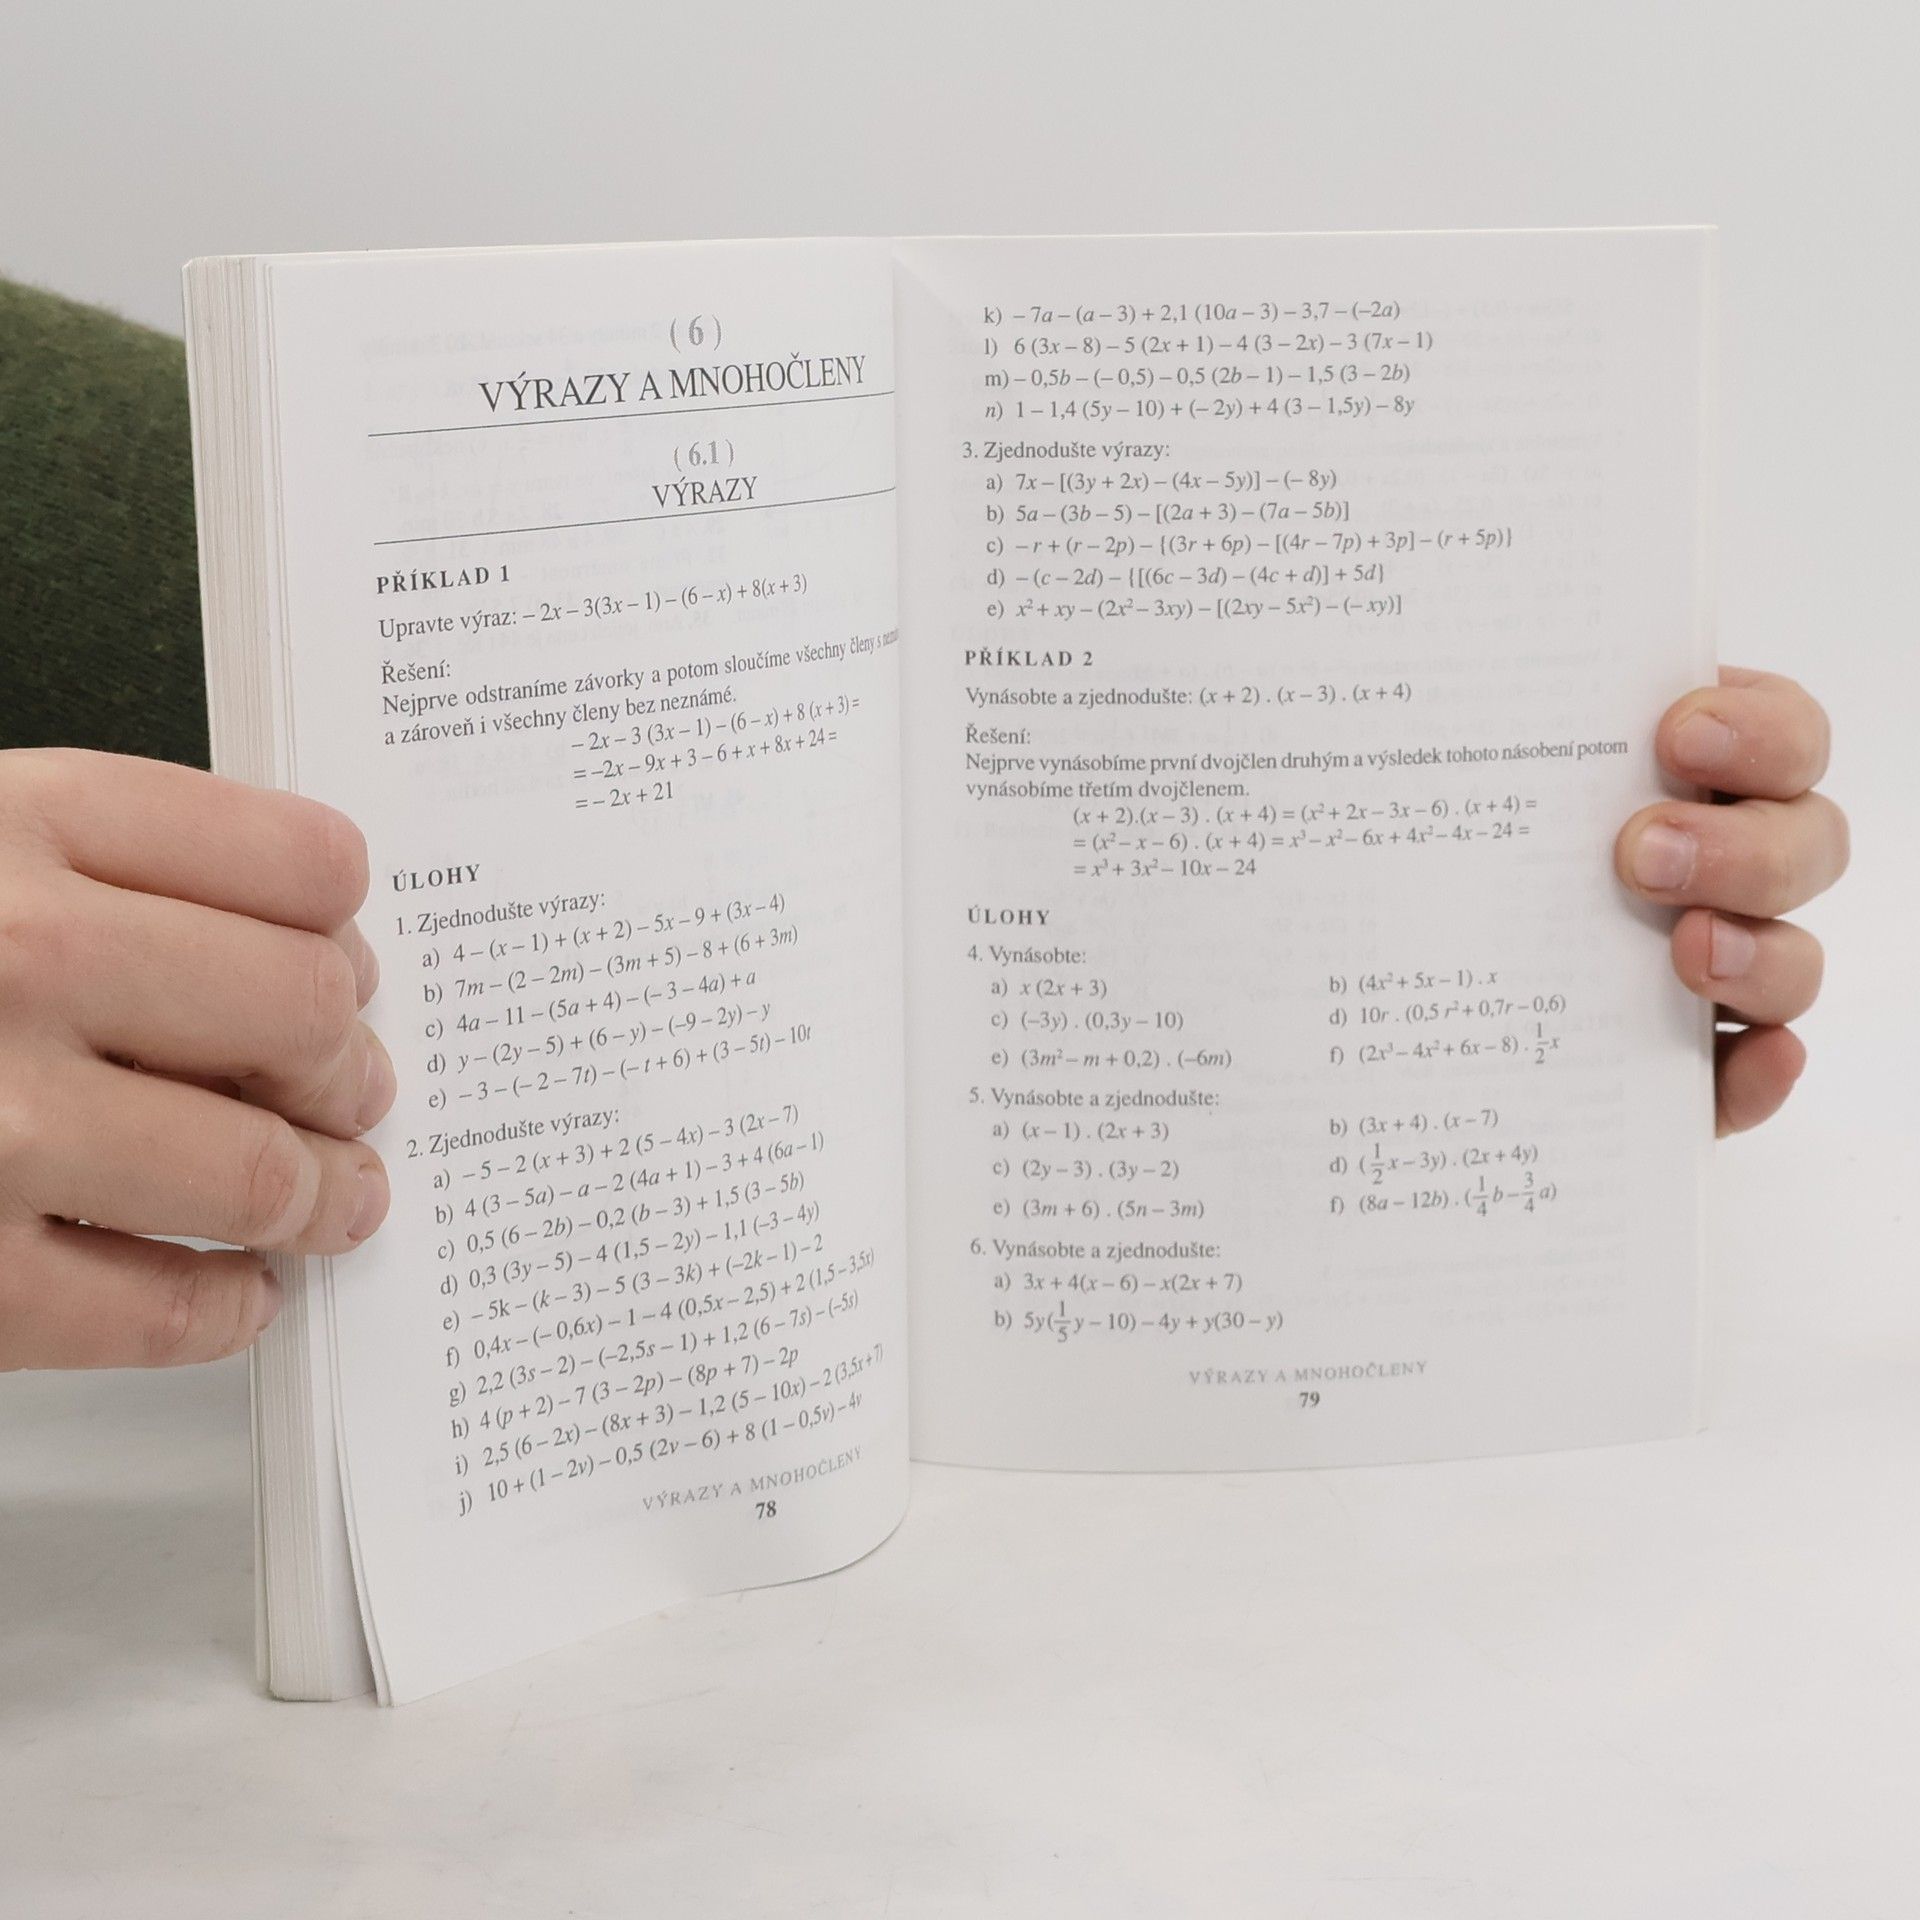 ( 6 )
VÝRAZY A MNOHOČLENY
( 6.1 )
VÝRAZY
PŘÍKLAD 1
Upravte výraz: – 2x – 3(3x – 1) – (6 – x) + 8(x + 3)
Řešení:
Nejprve odstraníme závorky a potom sloučíme všechny členy s
a zároveň i všechny členy bez neznámé.
– 2x – 3 (3x – 1) – (6 – x) + 8 (x + 3) =
= –2x – 9x + 3 – 6 + x + 8x + 24 =
= – 2x + 21
ÚLOHY
1. Zjednodušte výrazy:
a) 4 – (x – 1) + (x + 2) – 5x – 9 + (3x – 4)
b) 7m – (2 – 2m) – (3m + 5) – 8 + (6 + 3m)
c) 4a – 11 – (5a + 4) – (– 3 – 4a) + a
d) y – (2y – 5) + (6 – y) – (–9 – 2y) – y
e) – 3 – (– 2 – 7t) – (– t + 6) + (3 – 5t) – 10t
2. Zjednodušte výrazy:
a) – 5 – 2 (x + 3) + 2 (5 – 4x) – 3 (2x – 7)
b) 4 (3 – 5a) – a – 2 (4a + 1) – 3 + 4 (6a – 1)
c) 0,5 (6 – 2b) – 0,2 (b – 3) + 1,5 (3 – 5b)
d) 0,3 (3y – 5) – 4 (1,5 – 2y) – 1,1 (–3 – 4y)
e) – 5k – (k – 3) – 5 (3 – 3k) + (–2k – 1) – 2
f) 0,4x – (– 0,6x) – 1 – 4 (0,5x – 2,5) + 2 (1,5 – 3,5x)
g) 2,2 (3s – 2) – (–2,5s – 1) + 1,2 (6 – 7s) – (–5s)
h) 4 (p + 2) – 7 (3 – 2p) – (8p + 7) – 2p
i) 2,5 (6 – 2x) – (8x + 3) – 1,2 (5 – 10x) – 2 (3,5x + 7)
j) 10 + (1 – 2v) – 0,5 (2v – 6) + 8 (1 – 0,5v) – 4v
VÝRAZY A MNOHOČLENY
78
k) – 7a – (a – 3) + 2,1 (10a – 3) – 3,7 – (–2a)
l) 6 (3x – 8) – 5 (2x + 1) – 4 (3 – 2x) – 3 (7x – 1)
m) – 0,5b – (– 0,5) – 0,5 (2b – 1) – 1,5 (3 – 2b)
n) 1 – 1,4 (5y – 10) + (– 2y) + 4 (3 – 1,5y) – 8y
3. Zjednodušte výrazy:
a) 7x – [(3y + 2x) – (4x – 5y)] – (– 8y)
b) 5a – (3b – 5) – [(2a + 3) – (7a – 5b)]
c) – r + (r – 2p) – {(3r + 6p) – [(4r – 7p) + 3p] – (r + 5p)}
d) – (c – 2d) – {[(6c – 3d) – (4c + d)] + 5d}
e) x² + xy – (2x² – 3xy) – [(2xy – 5x²) – (– xy)]
PŘÍKLAD 2
Vynásobte a zjednodušte: (x + 2) . (x – 3) . (x + 4)
Řešení:
Nejprve vynásobíme první dvojčlen druhým a výsledek tohoto násobení potom
vynásobíme třetím dvojčlenem.
(x + 2).(x – 3) . (x + 4) = (x² + 2x – 3x – 6) . (x + 4) =
= (x² – x – 6) . (x + 4) = x³ – x² – 6x + 4x² – 4x – 24 =
= x³ + 3x² – 10x – 24
ÚLOHY
4. Vynásobte:
a) x (2x + 3) b) (4x² + 5x – 1) . x
c) (–3y) . (0,3y – 10) d) 10r . (0,5 r² + 0,7r – 0,6)
e) (3m² – m + 0,2) . (–6m) f) (2x³ – 4x² + 6x – 8) . 1/2 x
5. Vynásobte a zjednodušte:
a) (x – 1) . (2x + 3) b) (3x + 4) . (x – 7)
c) (2y – 3) . (3y – 2) d) (1/2 x – 3y) . (2x + 4y)
e) (3m + 6) . (5n – 3m) f) (8a – 12b) . (1/4 b – 3/4 a)
6. Vynásobte a zjednodušte:
a) 3x + 4(x – 6) – x(2x + 7)
b) 5y(1/5 y – 10) – 4y + y(30 – y)
VÝRAZY A MNOHOČLENY
79